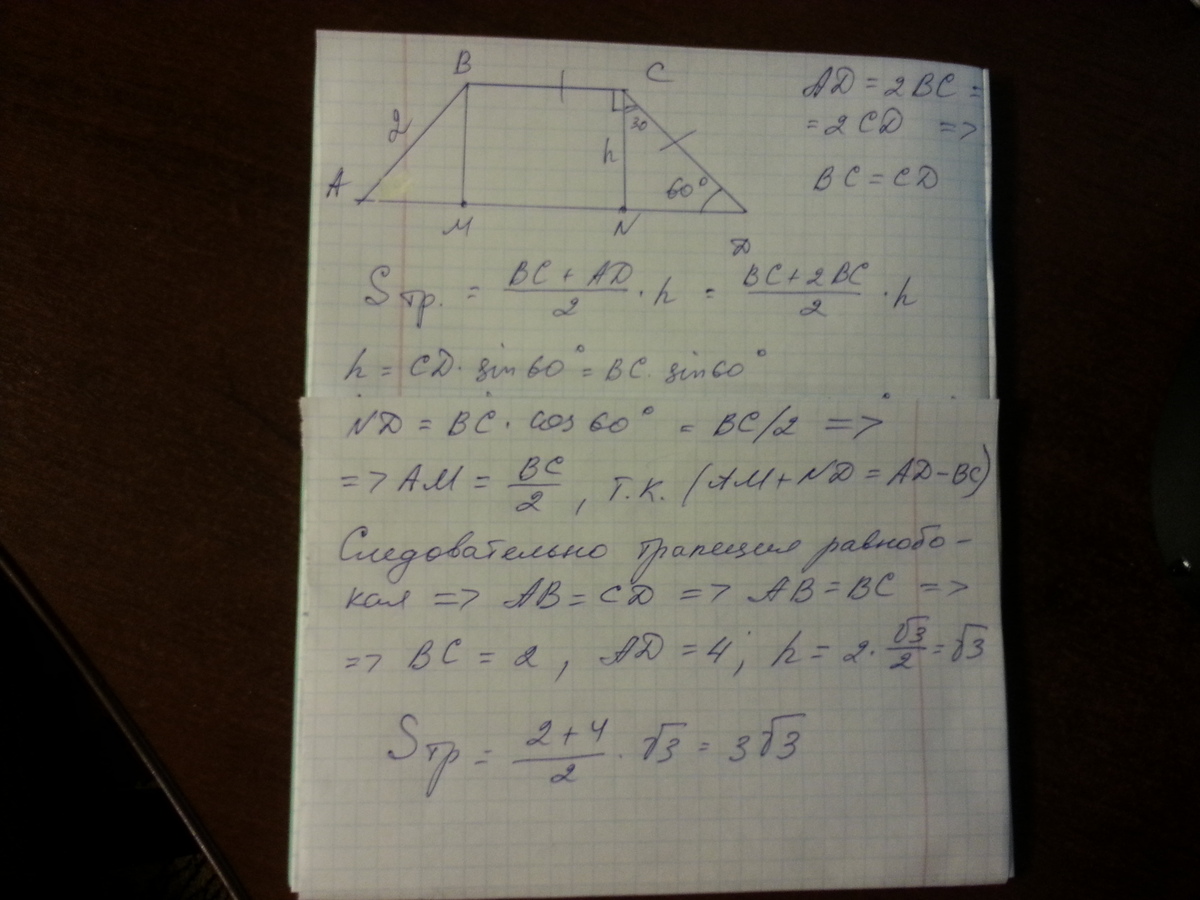 B
C
2
30
h
A
60°
M
N
D
AD = 2BC =
= 2CD =>
BC = CD
Sтр. = (BC + AD)/2 · h = (BC + 2BC)/2 · h
h = CD · sin60° = BC · sin60°
ND = BC · cos60° = BC/2 =>
=> AM = BC/2, т.к. (AM + ND = AD - BC)
Следовательно трапеция равнобо-
кая => AB = CD => AB = BC =>
=> BC = 2, AD = 4; h = 2 · √3/2 = √3
Sтр = (2 + 4)/2 · √3 = 3√3